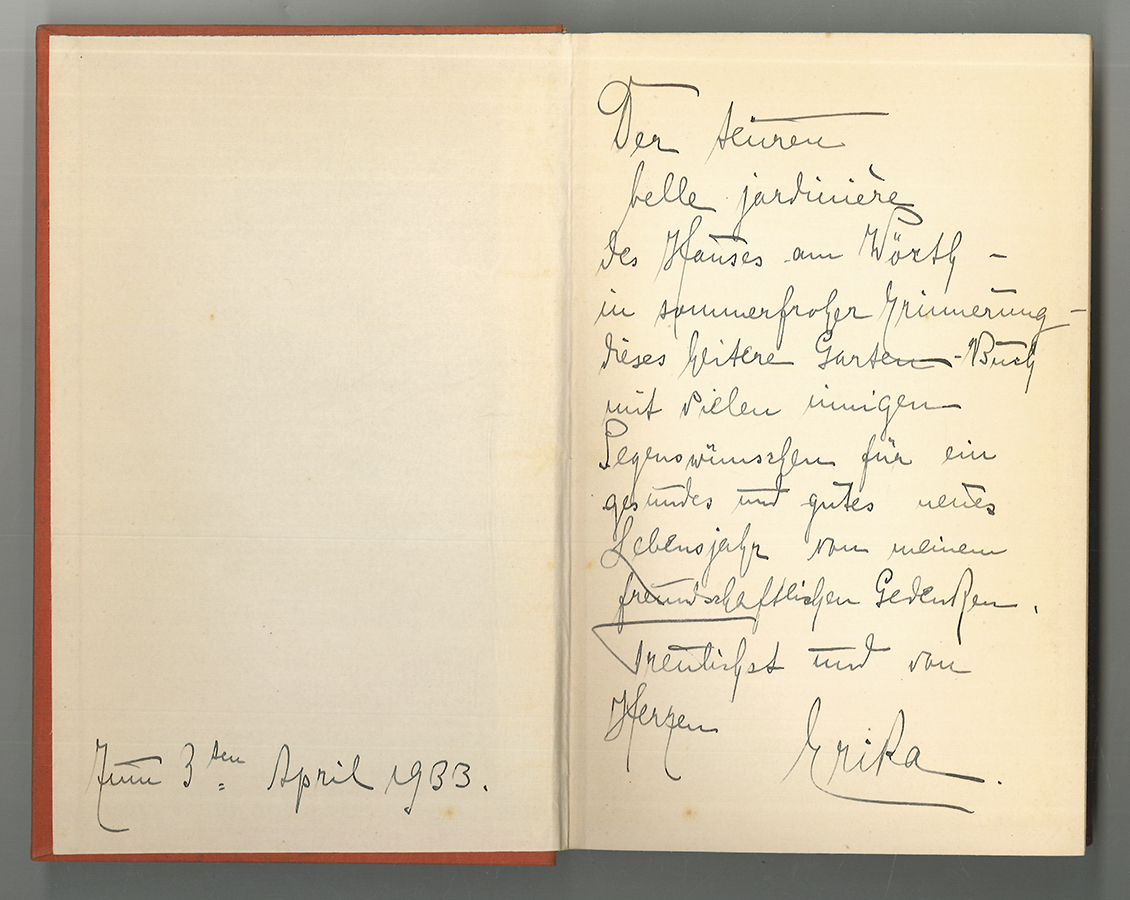 Zum 3ten April 1933.
Der teuren
belle jardinière
des Hauses am Wörth –
in sommerfroher Erinnerung –
dieses heitere Garten-Buch
mit vielen innigen
Segenswünschen für ein
gesundes und gutes neues
Lebensjahr von meinem
freundschaftlichen Gedenken.
Treulichst und von
Herzen Erika.